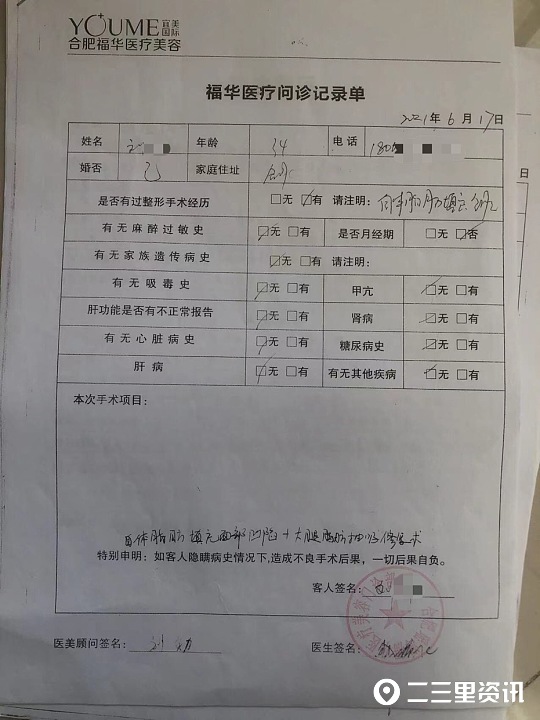 YOUME 宜美国际
合肥福华医疗美容
福华医疗问诊记录单
2021年 6 月 17日
姓名 年龄 34 电话
婚否 已 家庭住址
是否有过整形手术经历 □无 ☑有 请注明:
有无麻醉过敏史 ☑无 □有 是否月经期 □是 ☑否
有无家族遗传病史 ☑无 □有 请注明:
有无吸毒史 ☑无 □有 甲亢 ☑无 □有
肝功能是否有不正常报告 ☑无 □有 肾病 ☑无 □有
有无心脏病史 ☑无 □有 糖尿病史 ☑无 □有
肝病 ☑无 □有 有无其他疾病 ☑无 □有
本次手术项目:
自体脂肪填充面部凹陷+大腿脂肪抽吸修复术
特别申明:如客人隐瞒病史情况下,造成不良手术后果,一切后果自负。
客人签名:
医美顾问签名: 医生签名:
二三里资讯